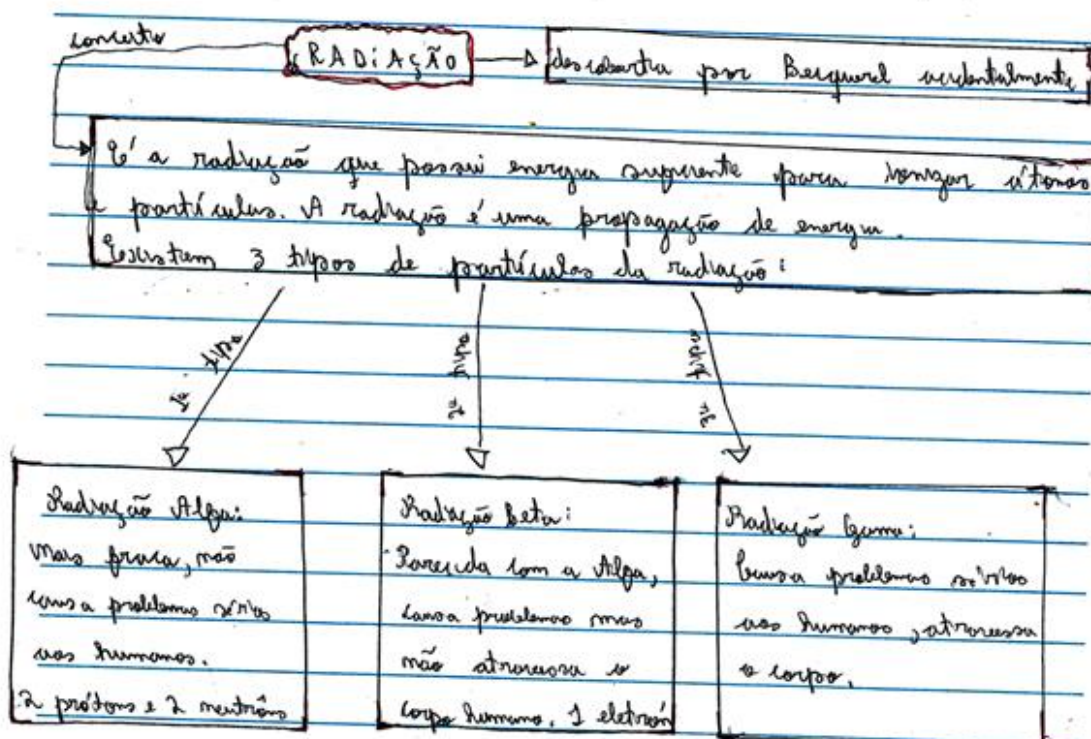 conceito
RADIAÇÃO
descoberta por Becquerel acidentalmente
É a radiação que possui energia suficiente para ionizar átomos
e partículas. A radiação é uma propagação de energia.
Existem 3 tipos de partículas da radiação:
1º tipo
2º tipo
3º tipo
Radiação Alfa:
mais fraca, não
causa problemas sérios
aos humanos.
2 prótons e 2 neutrôns
Radiação beta:
Parecida com a Alfa,
causa problemas mas
não atravessa o
corpo humano. 1 eletrón
Radiação Gama:
Causa problemas sérios
aos humanos, atravessa
o corpo.